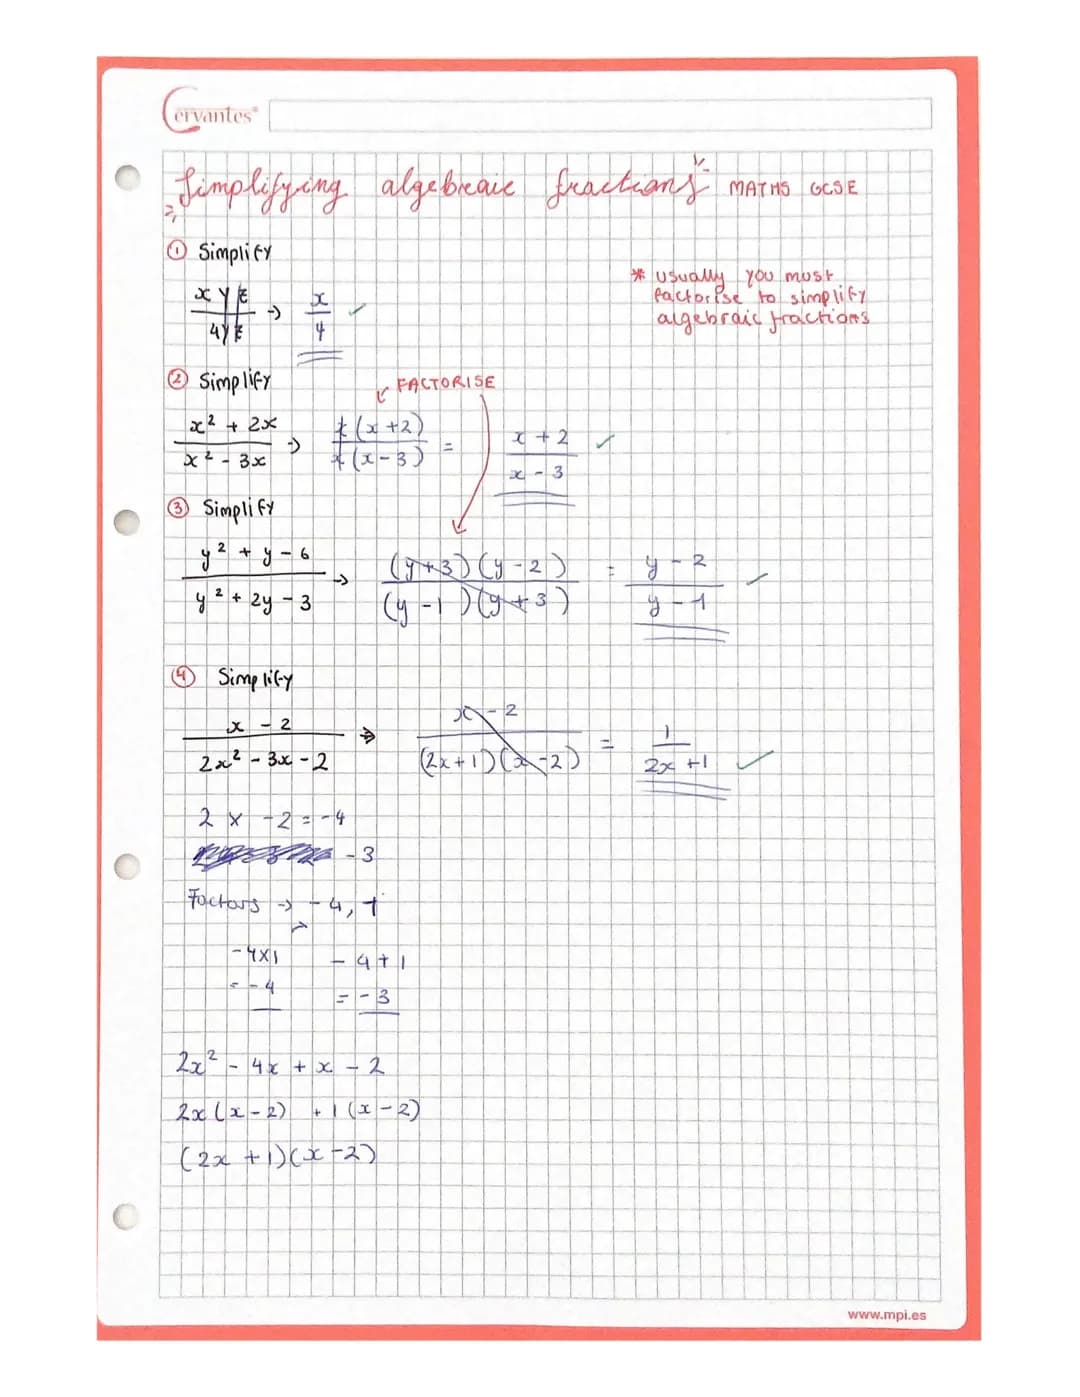 Cervantes®
Simplifying algebraic fractions MATHS GCSE
① Simplify
xyz
4yz
→
x
4
✓
* usually you must
factorise to simplify
algebraic fractions
② Simplify
FACTORISE
x² + 2x
x² - 3x
→
x(x+2)
x(x-3)
=
x + 2
x - 3
✓
③ Simplify
y² + y - 6
y² + 2y - 3
→
(y+3)(y-2)
(y-1)(y+3)
=
y - 2
y - 1
✓
④ Simplify
x - 2
2x² - 3x - 2
→
x - 2
(2x+1)(x-2)
=
1
2x+1
✓
2 x -2 = -4
-3
Factors → -4, 1
-4x1
= -4
-4+1
= -3
2x² - 4x + x - 2
2x(x-2) + 1(x-2)
(2x+1)(x-2)
www.mpi.es